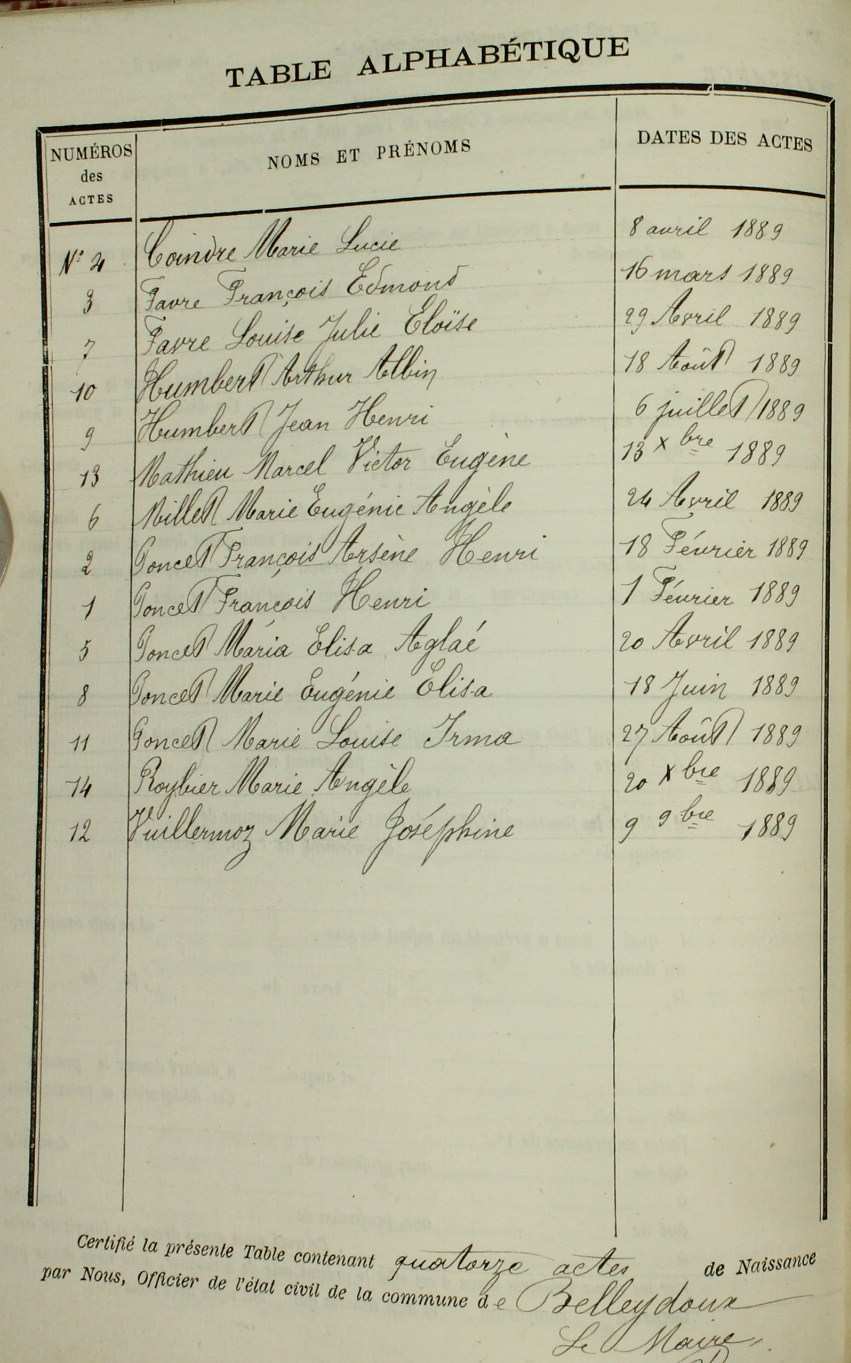 TABLE ALPHABÉTIQUE
NUMÉROS des ACTES NOMS ET PRÉNOMS DATES DES ACTES
N° 4 Coindre Marie Lucie 8 avril 1889
3 Favre François Edmond 16 mars 1889
7 Favre Louise Julie Eloïse 29 Avril 1889
10 Humbert Arthur Albin 18 Août 1889
9 Humbert Jean Henri 6 juillet 1889
13 Mathieu Marcel Victor Eugène 13 Xbre 1889
6 Millet Marie Eugénie Angèle 24 Avril 1889
2 Poncet François Arsène Henri 18 Février 1889
1 Poncet François Henri 1 Février 1889
5 Poncet Maria Elisa Aglaé 20 Avril 1889
8 Poncet Marie Eugénie Elisa 18 Juin 1889
11 Poncet Marie Louise Irma 27 Août 1889
14 Roybier Marie Angèle 20 Xbre 1889
12 Vuillermoz Marie Joséphine 9 9bre 1889
Certifié la présente Table contenant quatorze actes de Naissance
par Nous, Officier de l'état civil de la commune de Belleydoux
Le Maire